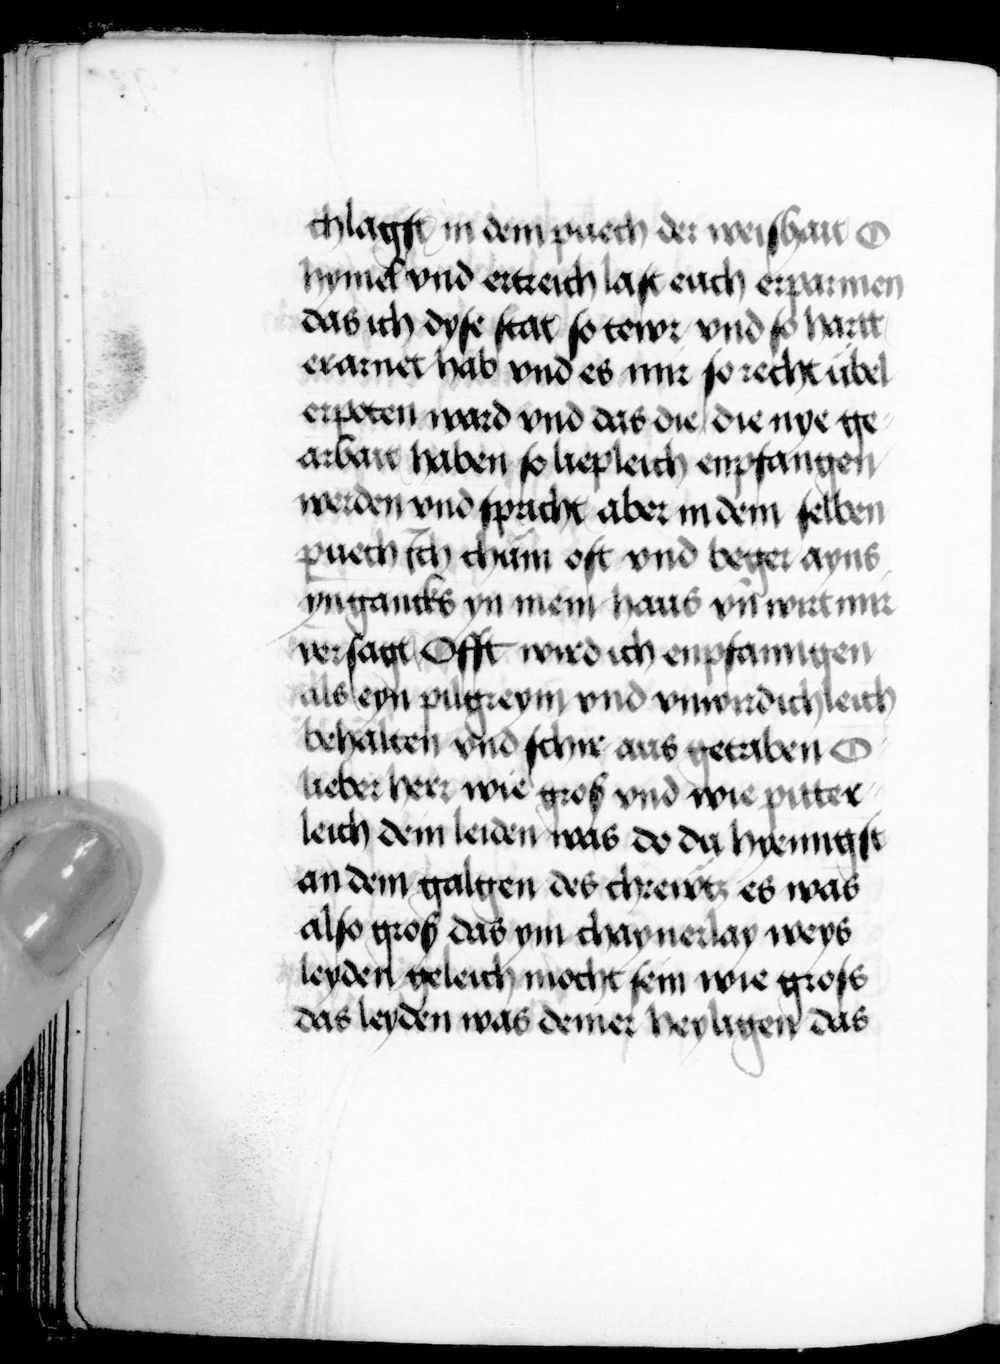 chlagst in dem puech der weishait O
hymel vnd ertreich last euch erparmen
das ich dyse stat so tewr vnd so hartt
erarnet hab vnd es mir so recht übel
erpoten ward vnd das die die nye ge-
arbait haben so liepleich enpfangen
werden vnd spricht aber in dem selben
puech Ich chüm oft vnd beger ayns
yngancks yn mein haus vn̄ wirt mir
versagt Offt wird ich enpfanngen
als eyn pilgreym vnd vnwirdichleich
behalten vnd schir aus getriben O
lieber herr wie gross vnd wie pitter-
leich dein leiden was do du hyenngst
an dem galgen des chrewtz es was
also gross das ym chaynerlay weys
leyden geleich mocht sein wie gross
das leyden was deiner heyligen das